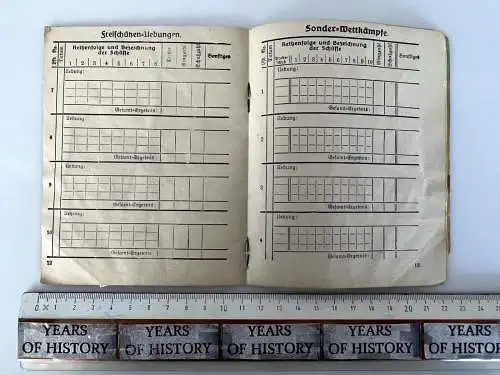 Freischützen-Uebungen.
Lfd. Nr.
Datum
Reihenfolge und Bezeichnung
der Schüsse
1 2 3 4 5 6 7 8
Sonstiges
7
Uebung:
Gesamt-Ergebnis:
Uebung:
Gesamt-Ergebnis:
9
Uebung:
Gesamt-Ergebnis:
10
Uebung:
Gesamt-Ergebnis:
Sonder-Wettkämpfe.
Lfd. Nr.
Datum
Reihenfolge und Bezeichnung
der Schüsse
1 2 3 4 5 6 7 8 9 10
Sonstiges
1
Uebung:
Gesamt-Ergebnis:
2
Uebung:
Gesamt-Ergebnis:
Uebung:
Gesamt-Ergebnis:
4
Uebung:
Gesamt-Ergebnis:
0 1 2 3 4 5 6 7 8 9 10 11 12 13 14 15 16 17 18 19 20 21 22 23 24
YEARS
OF HISTORY
YEARS
OF HISTORY
YEARS
OF HISTORY